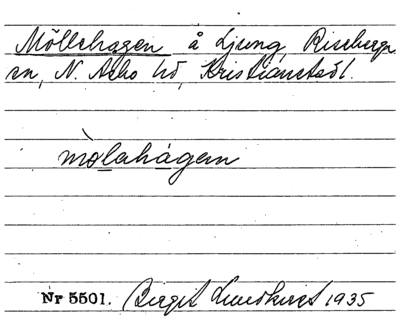 Möllehagen å Ljung, Riseberga
sn, N. Åsbo hd, Kristianstads l.
mòlahágen
Nr 5501. Birgit Lundkvist 1935